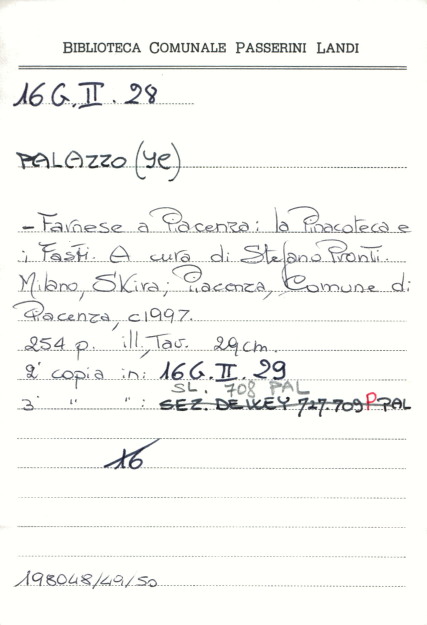 BIBLIOTECA COMUNALE PASSERINI LANDI
16 G. II. 28
PALAZZO (ye)
- Farnese a Piacenza: la Pinacoteca e
i Fasti. A cura di Stefano Pronti.
Milano, Skira; Piacenza, Comune di
Piacenza, c1997.
254 p. ill., Tav. 29 cm.
2ª copia in: 16 G. II. 29
SL. 708 PAL
3ª " " : SEZ. DEWEY 727.709 P PAL
16
198048/49/50